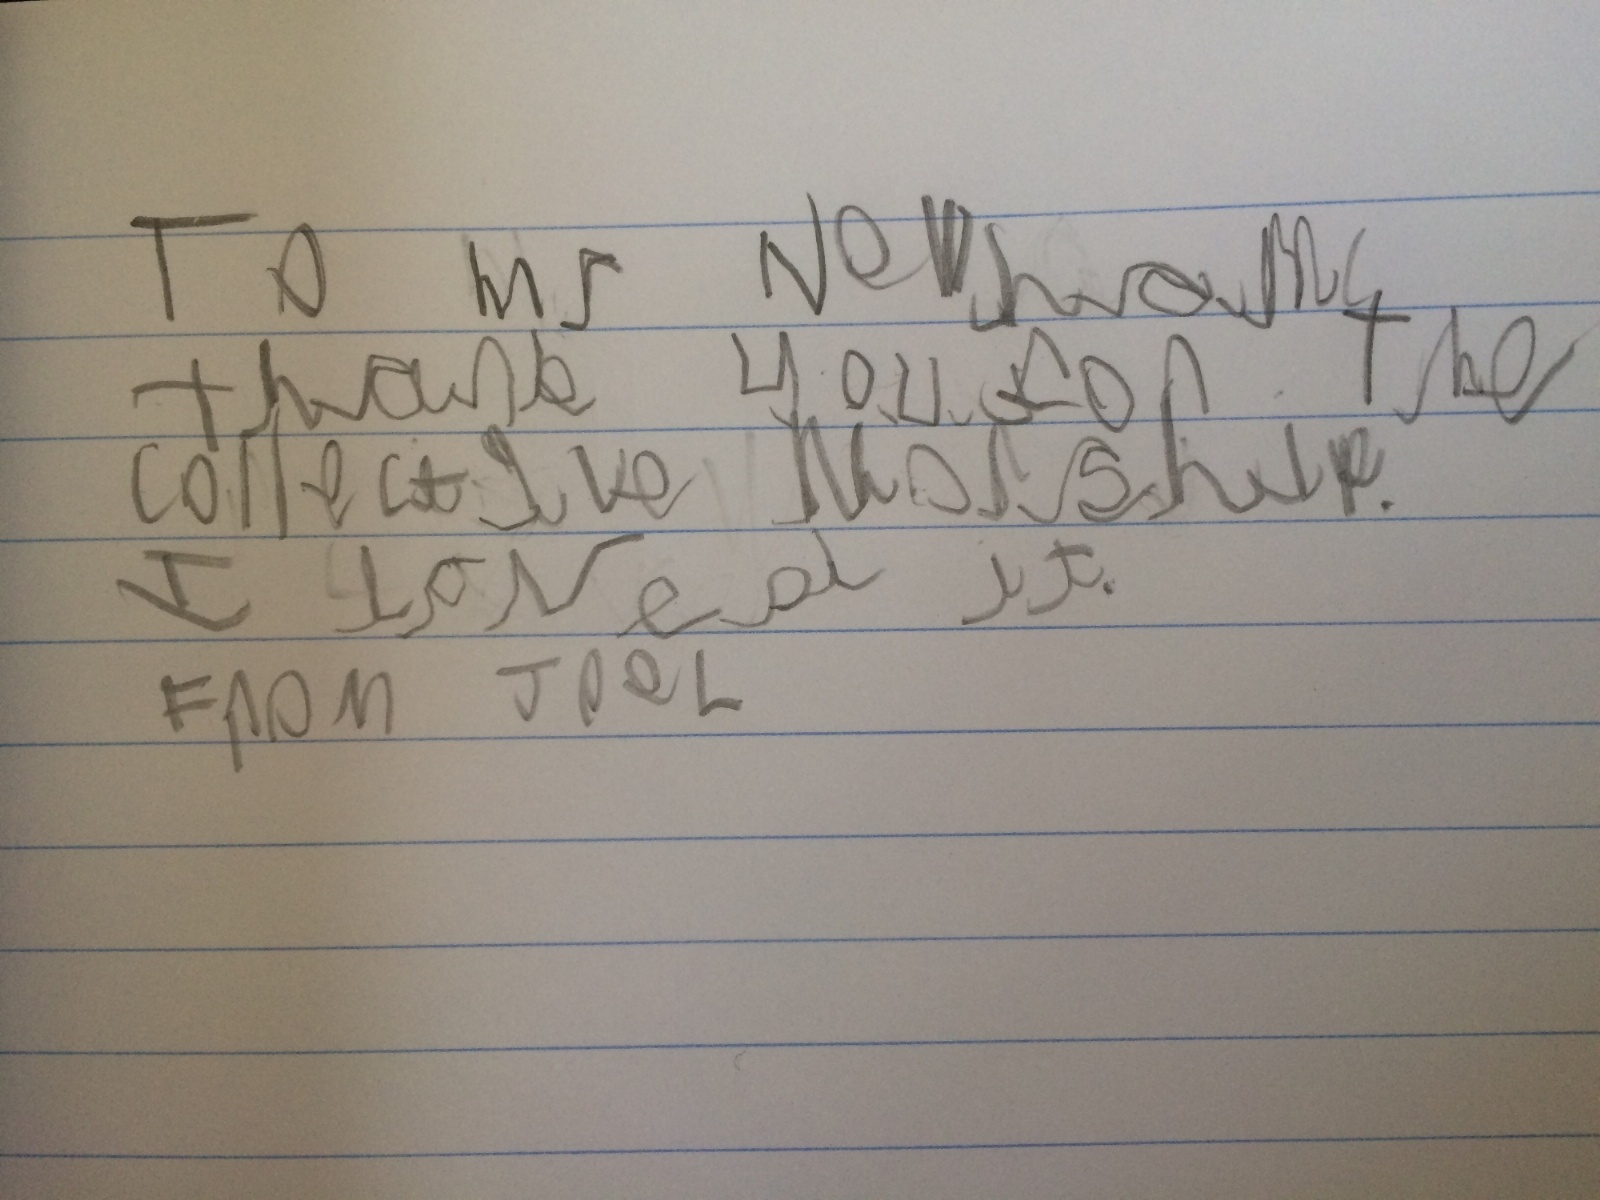 To mr Newham
thank you for the
collective worship.
I loved it.
From Joel